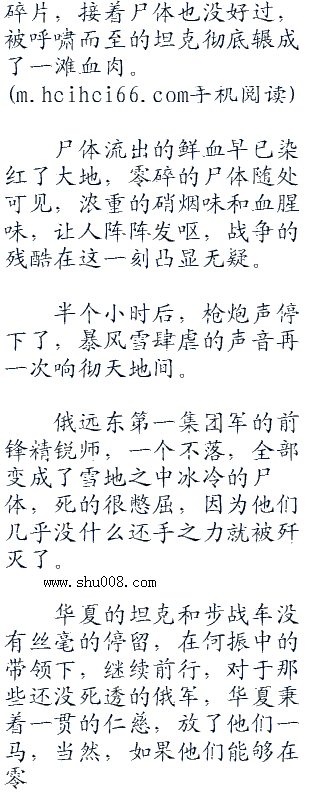 碎片，接着尸体也没好过，
被呼啸而至的坦克彻底辗成
了一滩血肉。
(m.hcihci66.com手机阅读)
尸体流出的鲜血早已染
红了大地，零碎的尸体随处
可见，浓重的硝烟味和血腥
味，让人阵阵发呕，战争的
残酷在这一刻凸显无疑。
半个小时后，枪炮声停
下了，暴风雪肆虐的声音再
一次响彻天地间。
俄远东第一集团军的前
锋精锐师，一个不落，全部
变成了雪地之中冰冷的尸
体，死的很憋屈，因为他们
几乎没什么还手之力就被歼
灭了。
www.shu008.com
华夏的坦克和步战车没
有丝毫的停留，在何振中的
带领下，继续前行，对于那
些还没死透的俄军，华夏秉
着一贯的仁慈，放了他们一
马，当然，如果他们能够在
零